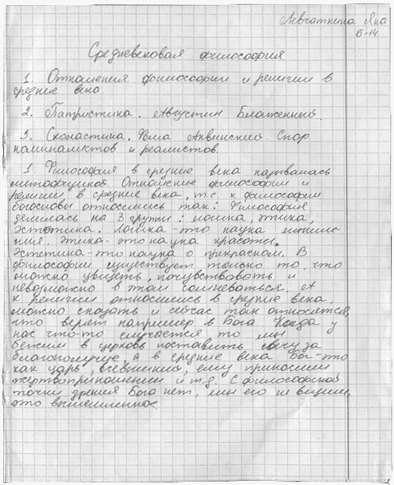 Левчаткина Яна
В-14
Средневековая философия
1. Отношения философии и религии в
средние века
2. Патристика. Августин Блаженный.
3. Схоластика. Фома Аквинский Спор
номиналистов и реалистов.
1. Философия в средние века называлась
Отношение философии и
религии в средние века, т.е. к философии
богословы относились так: Философия
делилась на 3 группы: логика, этика,
эстетика. Логика - это наука
Этика - это наука красоты.
Эстетика - это наука о прекрасном. В
философии существует только то, что
можно увидеть, почувствовать и
невозможно в том сомневаться. А
к религии относились в средние века,
можно сказать и сейчас так относятся,
что верят например в Бога Когда у
нас что-то случается то мы
бежим в церковь поставить свечу за
благополучие, а в средние века Бог-это
как царь, всевышний, ему приносили
жертвоприношения и т.д. С философской
точки зрения Бога нет, мы его не видим,
это вымышленное